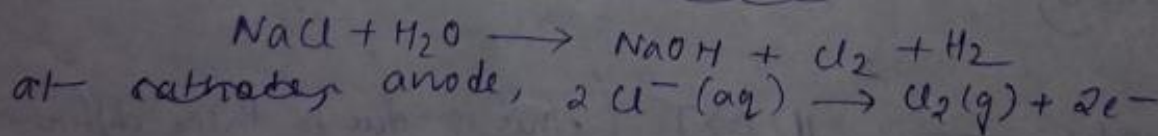 NaCl + H₂O ⟶ NaOH + Cl₂ + H₂
at anode, 2Cl⁻ (aq) ⟶ Cl₂(g) + 2e⁻